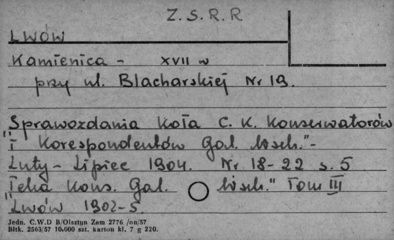 Z.S.R.R
LWÓW
Kamienica - XVII w
przy ul. Blacharskiej Nr 19.
Sprawozdania Koła C. K. Konserwatorów
"i Korespondentów Gal. Wsch."-
Luty - Lipiec 1904. Nr 18-22 s. 5
Teka Kons. Gal. Wsch." Tom III
"Lwów 1902-5
Jedn. C.W.D B/Olsztyn Zam 2776 /on/57
Bltk. 2563/57 10.000 szt. karton kl. 7 g 220.